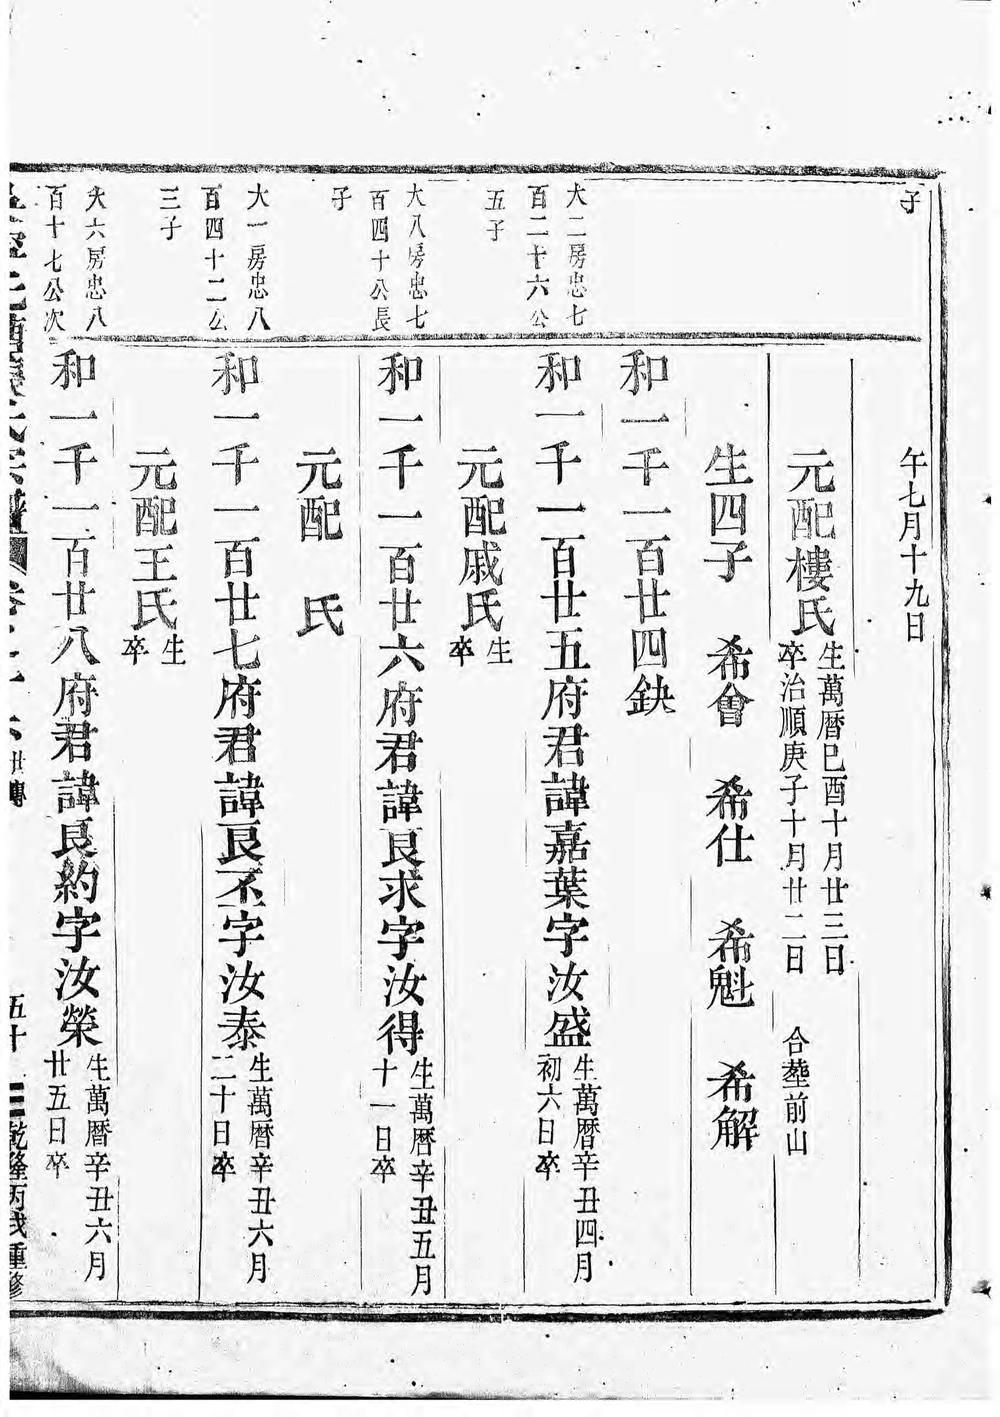 子
午七月十九日
元配樓氏
生萬曆巳酉十月廿三日
卒治順庚子十月廿二日
合塟前山
生四子 希會 希仕 希魁 希解
和一千一百廿四鈌
大二房忠七
百二十六公
五子
和一千一百廿五府君諱嘉葉字汝盛
生萬曆辛丑四月
初六日卒
元配戚氏
生
卒
大八房忠七
百四十公長
子
和一千一百廿六府君諱良求字汝得
生萬曆辛丑五月
十一日卒
元配 氏
大一房忠八
百四十二公
三子
和一千一百廿七府君諱良丕字汝泰
生萬曆辛丑六月
二十日卒
元配王氏
生
卒
大六房忠八
百十七公次
和一千一百廿八府君諱良約字汝榮
生萬曆辛丑六月
廿五日卒
氏宗譜
世傳
五十二
乾隆丙戌重修